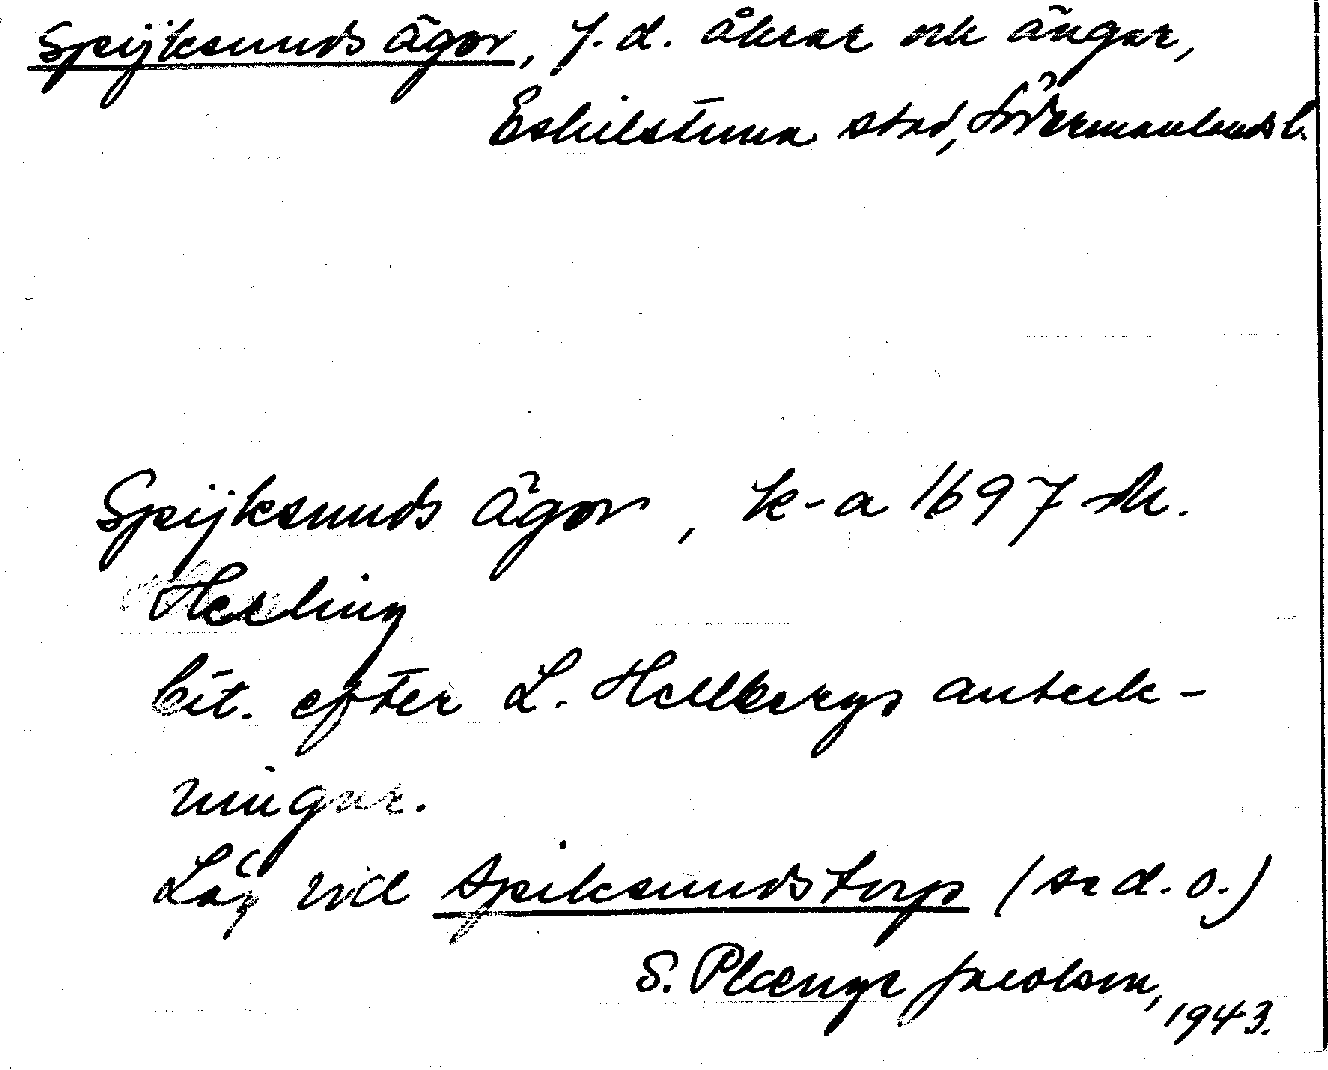 Spijksunds ägor, f.d. åkrar och ängar,
Eskilstuna stad, Södermanlands l.
Spijksunds ägor, k-a 1697 av
Hesling
Cit. efter L. Hellbergs anteck-
ningar.
Låg vid Spiksundstorp (se d. o.)
S. Plænge Jacobson,
1943.